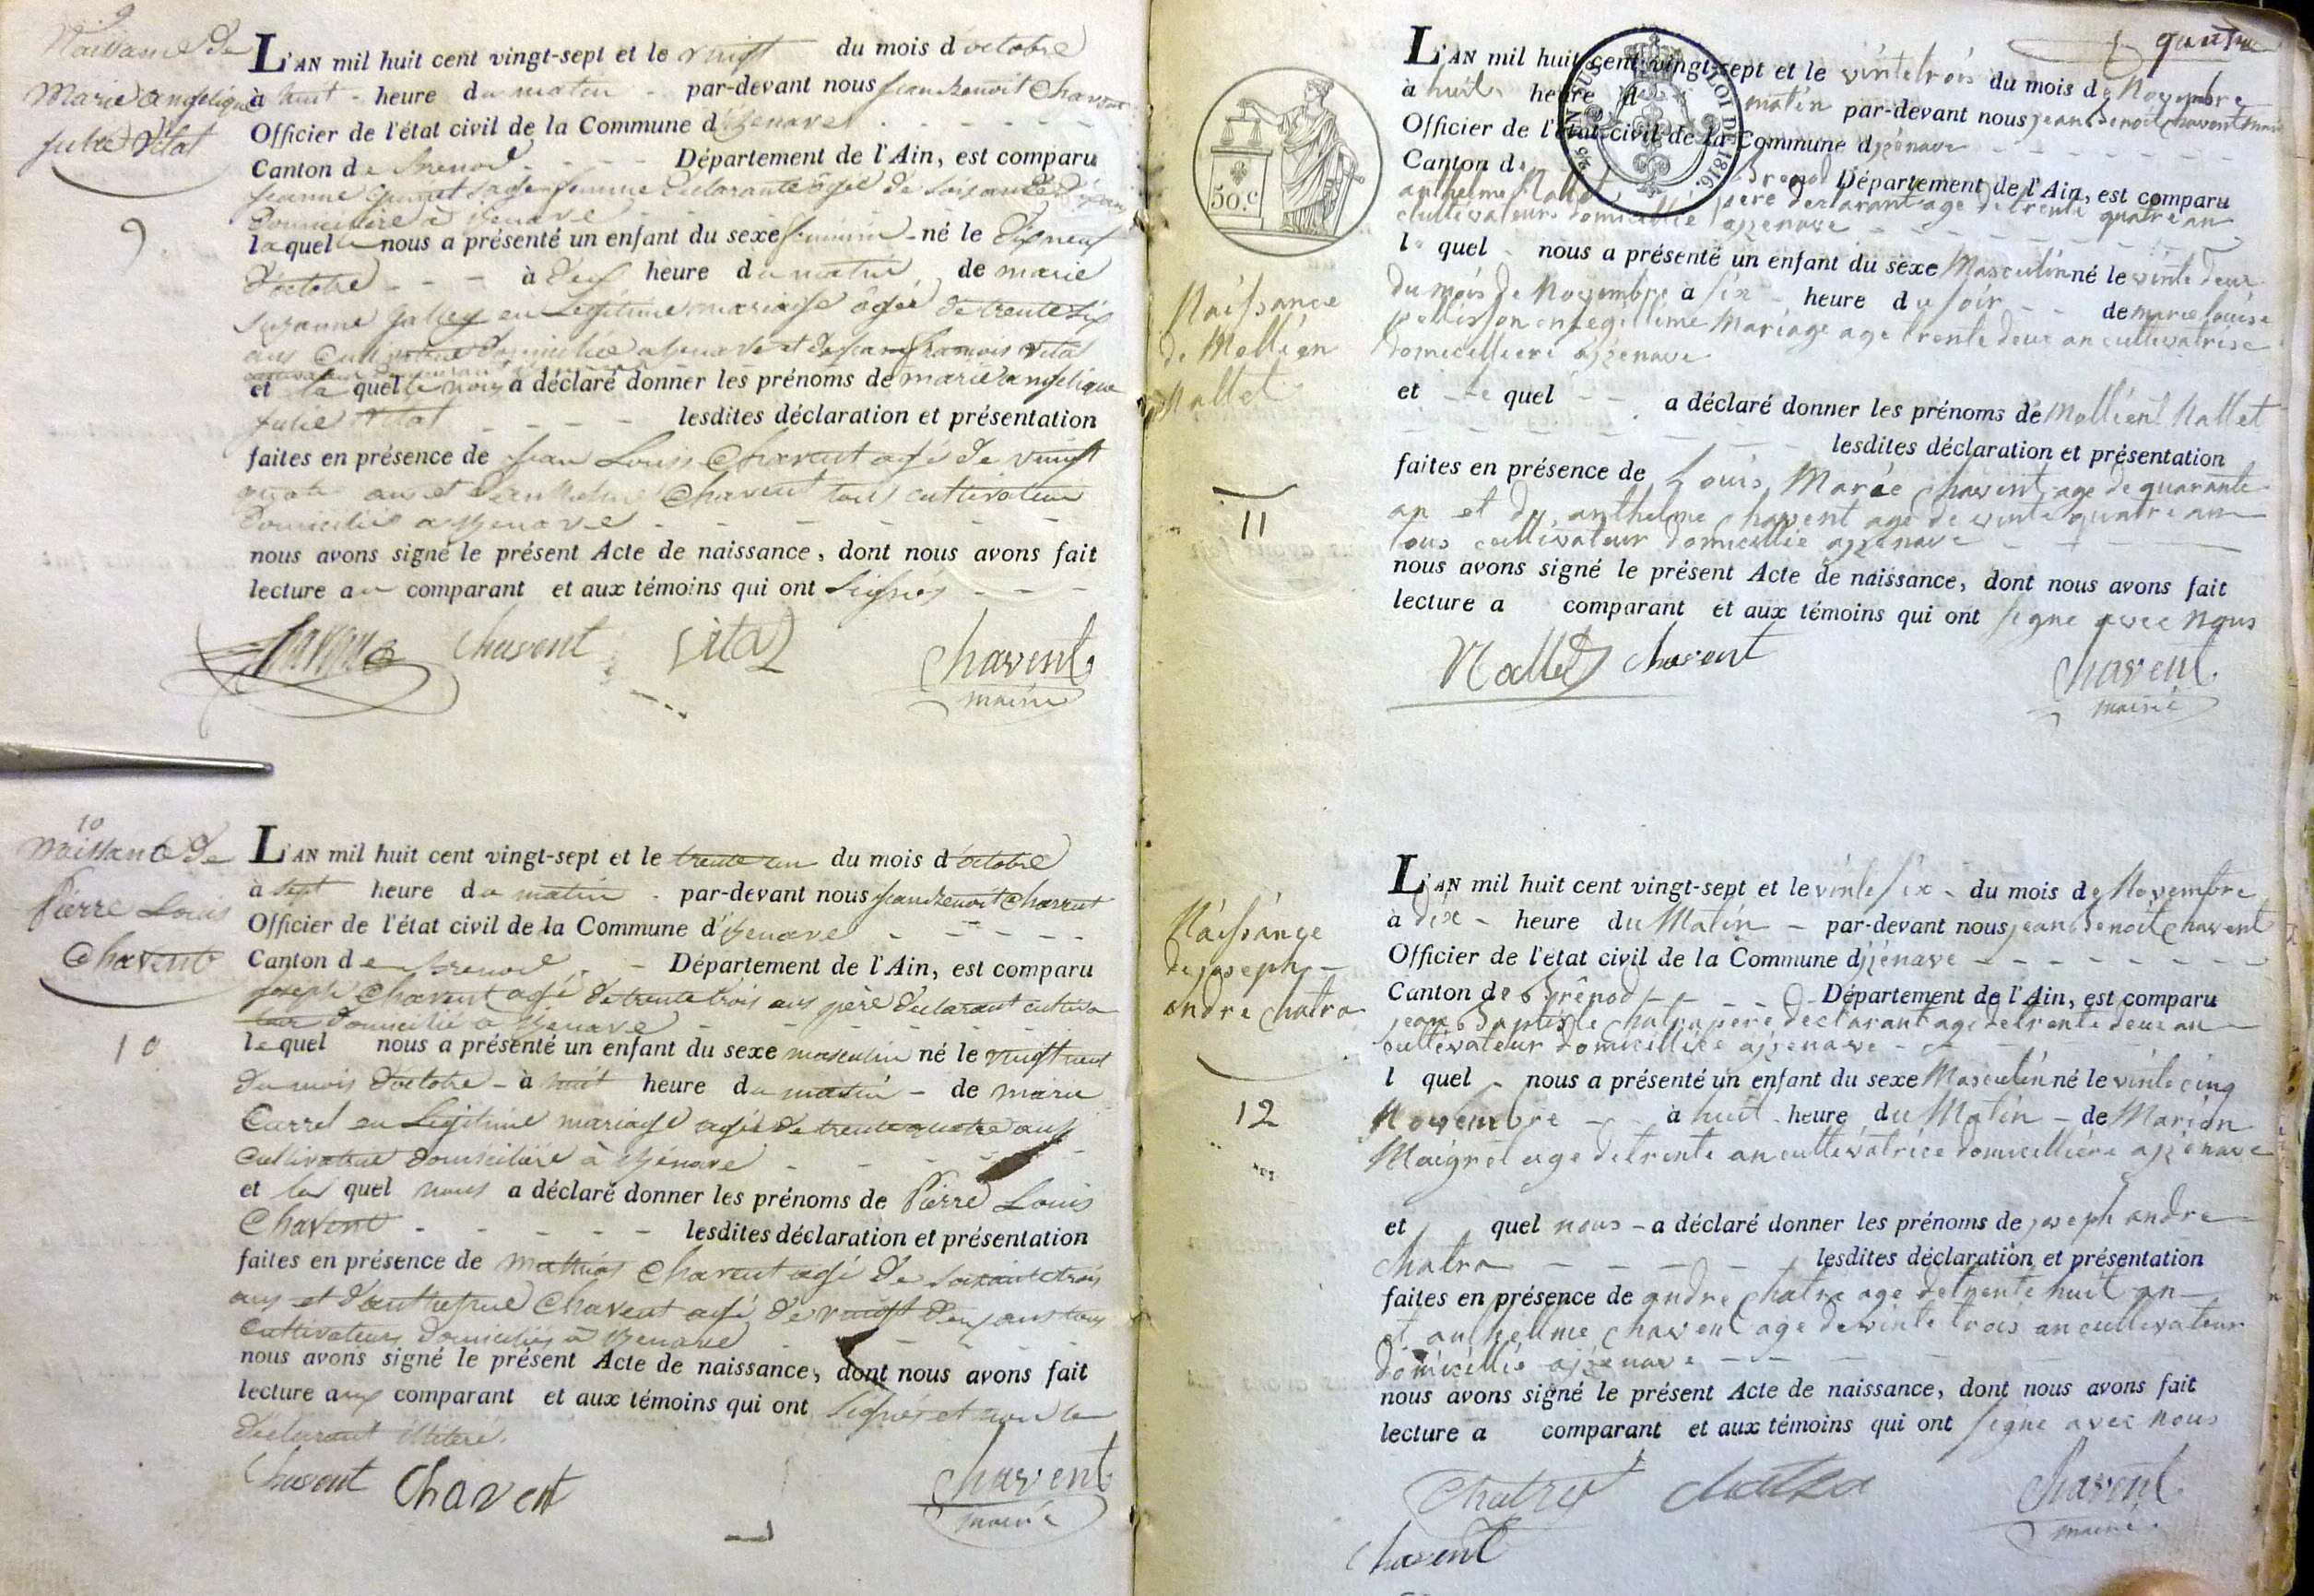 9
Naissance de
Marie angelique
julie Vital
9
L'AN mil huit cent vingt-sept et le vingt du mois d'octobre
à huit - heure du matin - par-devant nous jean Benoit Chavent
Officier de l'état civil de la Commune d'izenave
Canton de Brenod - - - Département de l'Ain, est comparu
jeanne sage femme declarante âgée de soixante
domiciliére à izenave
laquelle nous a présenté un enfant du sexe feminin - né le dix neuf
d'octobre - - - à heure du matin, de marie
Suzanne en Legitime mariage âgée de trente six
ans Cultivatrice domiciliée a izenave et de jean francois Vital
et la quelle nous a déclaré donner les prénoms de marie angelique
julie Vital - - - - lesdites déclaration et présentation
faites en présence de jean Louis Chavent agé de vingt
quatre ans et d'anthelme Chavent tous cultivateur
domicilié a izenave
nous avons signé le présent Acte de naissance, dont nous avons fait
lecture au comparant et aux témoins qui ont Signés - - -
Chavent Vital Chavent
maire
10
Naissance de
Pierre Louis
Chavent
10
L'AN mil huit cent vingt-sept et le trente un du mois d'octobre
à sept heure du matin - par-devant nous jean Benoit Chavent
Officier de l'état civil de la Commune d'izenave
Canton de Brenod - - Département de l'Ain, est comparu
joseph Chavent agé de trente trois ans père declarant cultiva
teur domicilié a izenave
lequel nous a présenté un enfant du sexe masculin né le vingt neuf
du mois d'octobre - à huit heure du matin - de marie
Currel en Legitime mariage agée de trente quatre ans
Cultivatrice domiciliére à izénave
et le quel nous a déclaré donner les prénoms de Pierre Louis
Chavent - - - - - lesdites déclaration et présentation
faites en présence de mathias Chavent agé de soixante trois
ans et d'anthelme Chavent agé de vingt deux ans tous
Cultivateurs domiciliés à izenave
nous avons signé le présent Acte de naissance, dont nous avons fait
lecture aux comparant et aux témoins qui ont Signés et non le
déclarant illiteré.
Chavent Chavent Chavent
maire
quatre
50.C
LOI DE 1816.
Naissance
de Mollien
Nallet
11
L'AN mil huit cent vingt-sept et le vinte trois du mois de Novembre
à huit heure d matin par-devant nous jean Benoit Chavent maire
Officier de l'état civil de la Commune djzénave
Canton de Brenod Département de l'Ain, est comparu
anthelme Nallet père declarant age de trente quatre an
cultivateur domicellié ajzenave
le quel nous a présenté un enfant du sexe Masculin né le vinte deux
du mois de Novembre à six - heure du soir - - de marie louise
pellisson en legitime Mariage age trente deux an cultivatrise
domicelliere ajzenave
et le quel - - a déclaré donner les prénoms de Mollient Nallet
lesdites déclaration et présentation
faites en présence de Louis Marie Chavent age de quarante
an et du anthelme Chavent age de vinte quatre an
tous cultivateur domicellie ajzenave
nous avons signé le présent Acte de naissance, dont nous avons fait
lecture a comparant et aux témoins qui ont signe avec Nous
Nallet Chavent Chavent
maire
Naissance
de joseph
andre Chatra
12
L'AN mil huit cent vingt-sept et le vinte six - du mois de Novembre
à dix - heure du Matin - par-devant nous jean Benoit Chavent
Officier de l'état civil de la Commune djzénave
Canton de Brénod - - - Département de l'Ain, est comparu
jean Baptiste Chatra père declarant age de trente deux an
cultivateur domicelliée ajzenave
l quel - nous a présenté un enfant du sexe Masculin né le vinte cinq
Novembre - - à huit - heure du Matin - de Marion
Maigret age de trente an cultivatrice domicelliére ajzenave
et quel nous - a déclaré donner les prénoms de joseph andre
Chatra - - - - lesdites déclaration et présentation
faites en présence de andre Chatra age de trente huit an
et anthellme Chavent age de vinte trois an cultivateur
domicellie ajzenave
nous avons signé le présent Acte de naissance, dont nous avons fait
lecture a comparant et aux témoins qui ont signe avec Nous
Chatra Chatra Chavent
maire
Chavent